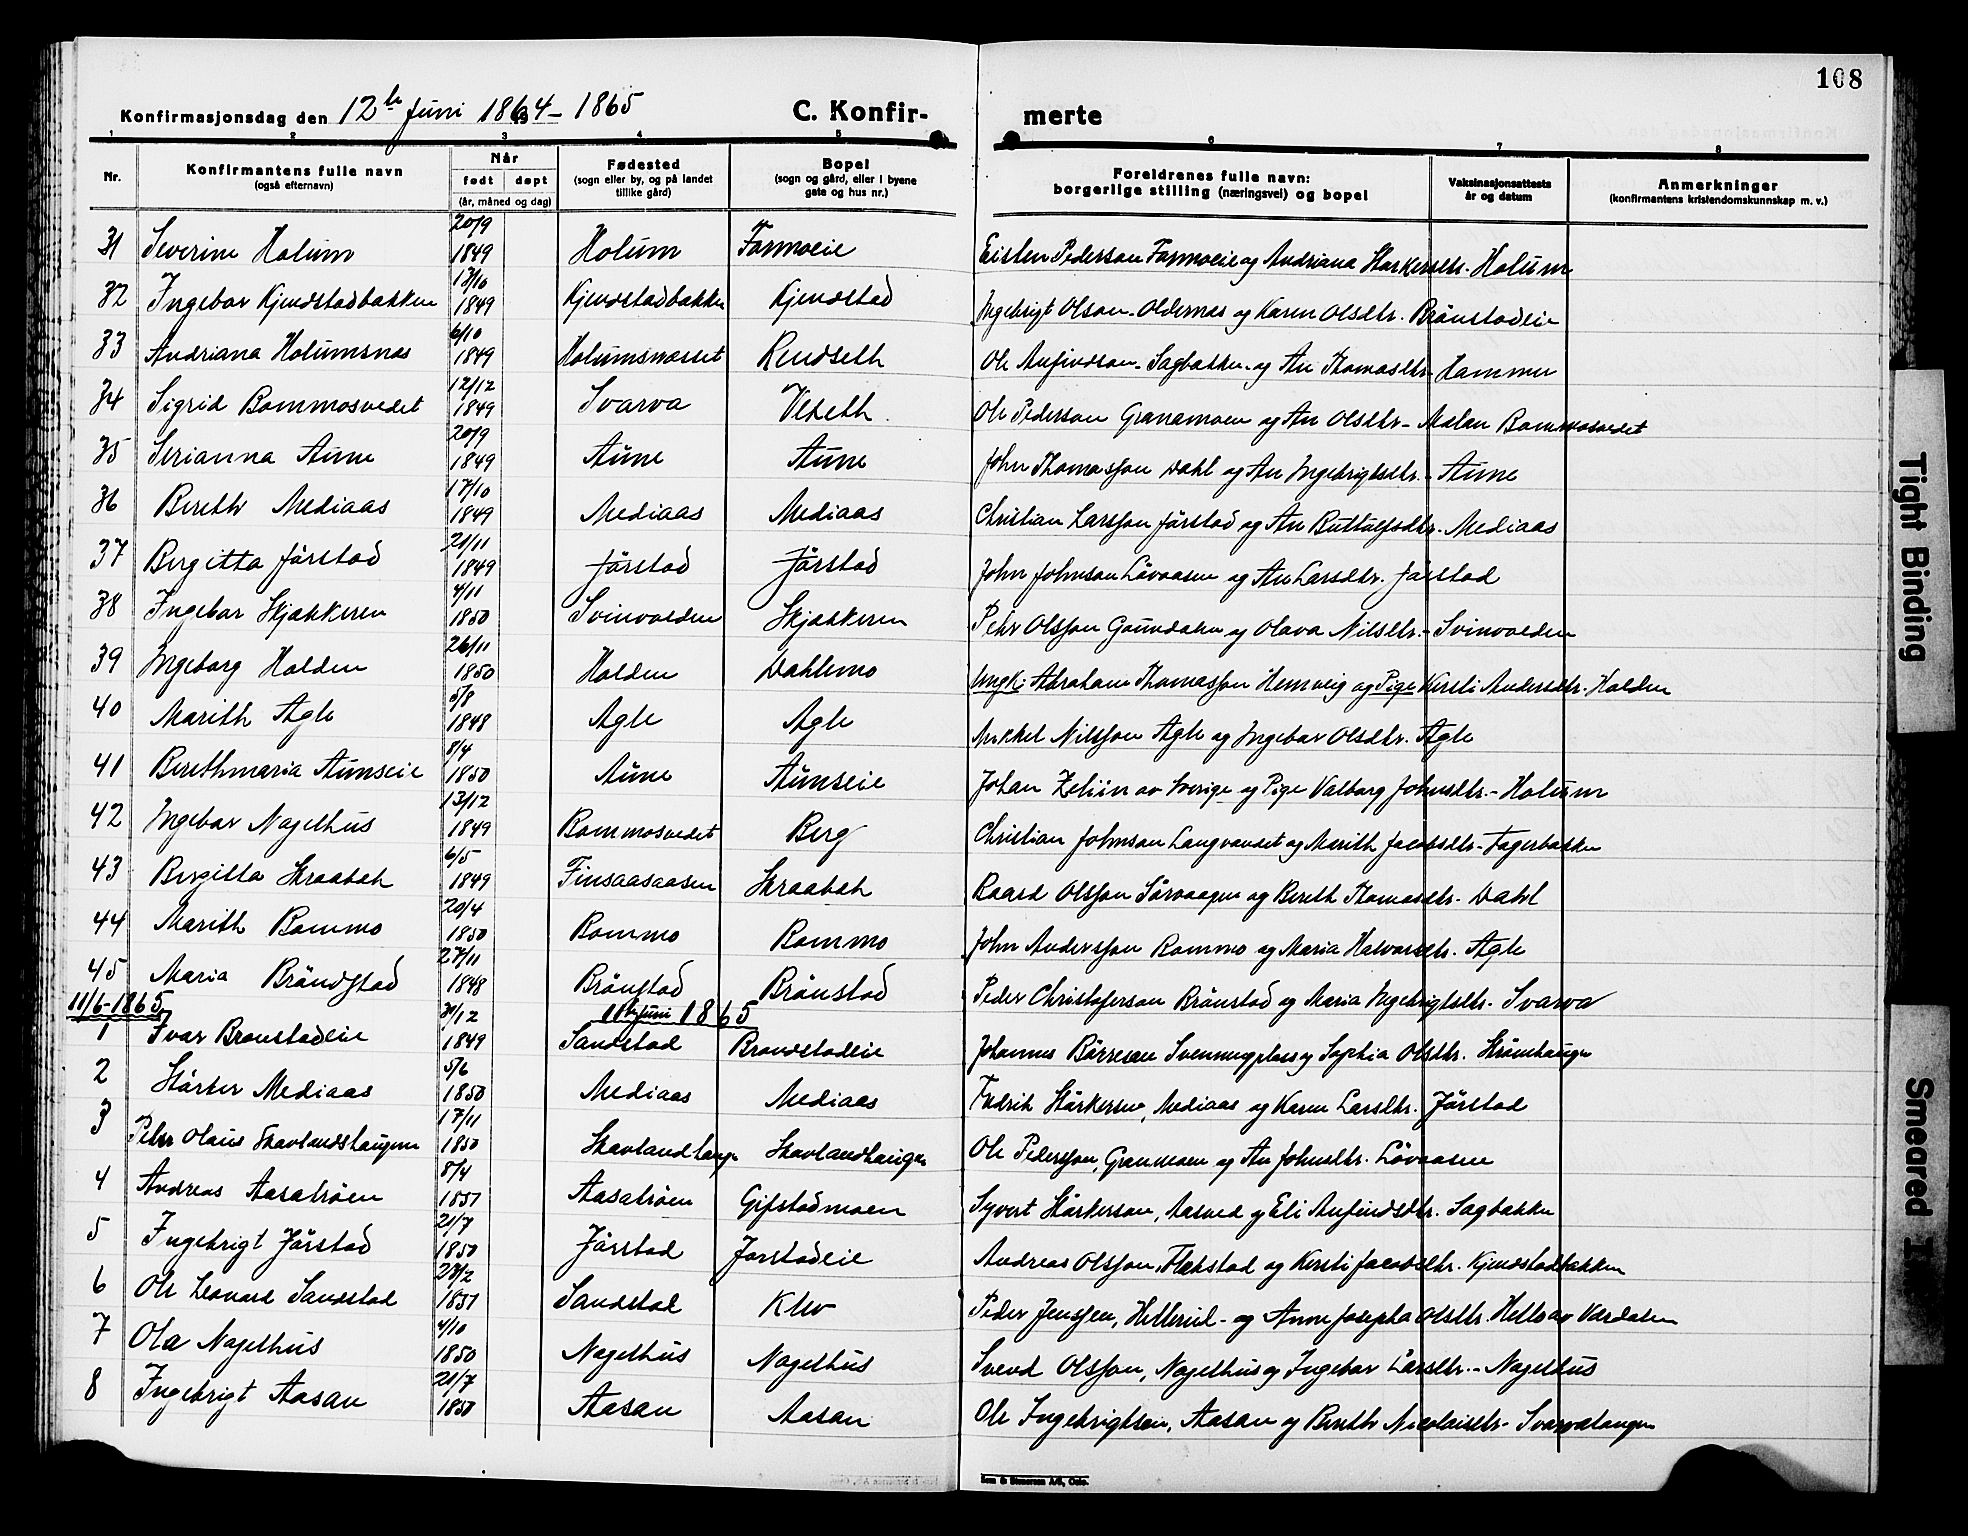 108
Konfirmasjonsdag den 12te Juni 1864 - 1865 C. Konfir- merte
1 2 3 4 5 6 7 8
Nr. Konfirmantens fulle navn (også efternavn) Når født døpt (år, måned og dag) Fødested (sogn eller by, og på landet tillike gård) Bopel (sogn og gård, eller i byene gate og hus nr.) Foreldrenes fulle navn: borgerlige stilling (næringsvei) og bopel Vaksinasjonsattests år og datum Anmerkninger (konfirmantens kristendomskunnskap m. v.)
31 Severine Holum 20/9 1849 Holum Formoeie Eisten Pederson Formoeie og Andriana Starkersdtr. Holum
32 Ingebor Kjendstadbakken 13/10 1849 Kjendstadbakken Kjendstad Ingebrigt Olson Oldernes og Karen Olsdtr. Brönstadeie
33 Andriana Holumsnes 6/10 1849 Holumsnesset Rendseth Ole Anfindson Sagbakken og An Thomasdtr. Hammer
34 Sigrid Bommosvedet 12/12 1849 Svarva Veseth Ole Pederson Granamoen og An Olsdtr - Malan Bommosvedet
35 Serianna Aune 20/9 1849 Aune Aune John Thomasson Dahl og An Ingebrigtsdtr. - Aune
36 Bereth Mediaas 17/10 1849 Mediaas Mediaas Christian Larsson Jörstad og An Buttulfsdtr. Mediaas
37 Bergitta Jörstad 21/11 1849 Jörstad Jörstad John Johnson Lövaasen og An Larsdtr. Jörstad
38 Ingebor Skjækkeren 4/11 1850 Svinvolden Skjækkeren Peter Olsson Gaundalen og Olava Nilsdtr. - Svinvolden
39 Ingeborg Holden 26/11 1850 Holden Dahlemo Ungk: Abraham Thomasson Hemveig og Pige Kersti Andersdtr. Holden
40 Marith Agle 5/8 1848 Agle Agle Mekkel Nilsson Agle og Ingebor Olsdtr. Agle
41 Berethmaria Aunseie 8/4 1850 Aune Aunseie Johan Zeliin av Sverige og Pige Valborg Johnsdtr. - Holum
42 Ingebor Nagelhus 13/12 1849 Bommosvedet Berg Christian Johnson Langvandet og Marith Jacobsdtr - Fagerbakken
43 Bergitta Skraabak 6/5 1849 Finsaasaasen Skraabak Baard Olsson Sörvaagen og Bereth Thomasdtr. Dahl
44 Marith Bommo 20/4 1850 Bommo Bommo John Andersson Bommo og Maria Halvorsdtr. Agle
45 Maria Bröndstad 27/11 1848 Brönstad Brönstad Peder Christoferson Brönstad og Maria Ingebrigtsdtr. Svarva
11/6-1865 11te Juni 1865
1 Ivar Bronstadeie 31/12 1849 Sandstad Brondstadeie Johannes Börresen Svenningplass og Sophia Olsdtr. Strömhaugen
2 Störker Mediaas 5/6 1850 Mediaas Mediaas Fredrik Störkersen, Mediaas og Karen Larsdtr. Jörstad
3 Peter Olaus Skavlandshaugen 17/11 1850 Skavlandhaug Skavlandhaugen Ole Pedersson, Granmoen og An Johnsdtr. Lövaasen
4 Andreas Aasatröen 8/4 1851 Aasatröen Gifstadmoen Syvert Störkerson, Aasved og Eli Anfindsdtr. Sagbakken
5 Ingebrigt Jörstad 21/7 1850 Jörstad Jorstadeie Andreas Olsson, Flekstad og Kersti Jacobsdtr. Kjendstadbakken
6 Ole Leonard Sandstad 28/2 1851 Sandstad Klev Peder Jenssen, Hellerud - og Anne Josepha Olsdtr. Helloav Værdalen
7 Ola Nagelhus 4/10 1850 Nagelhus Nagelhus Svend Olsson, Nagelhus og Ingebor Larsdtr. - Nagelhus
8 Ingebrigt Aasan 21/7 1850 Aasan Aasan Ole Ingebrigtsen, Aasan og Bereth Nicolaisdtr - Svarvatangen
Sem & Stenersen A/S, Oslo.
Tight Binding
Smeared I